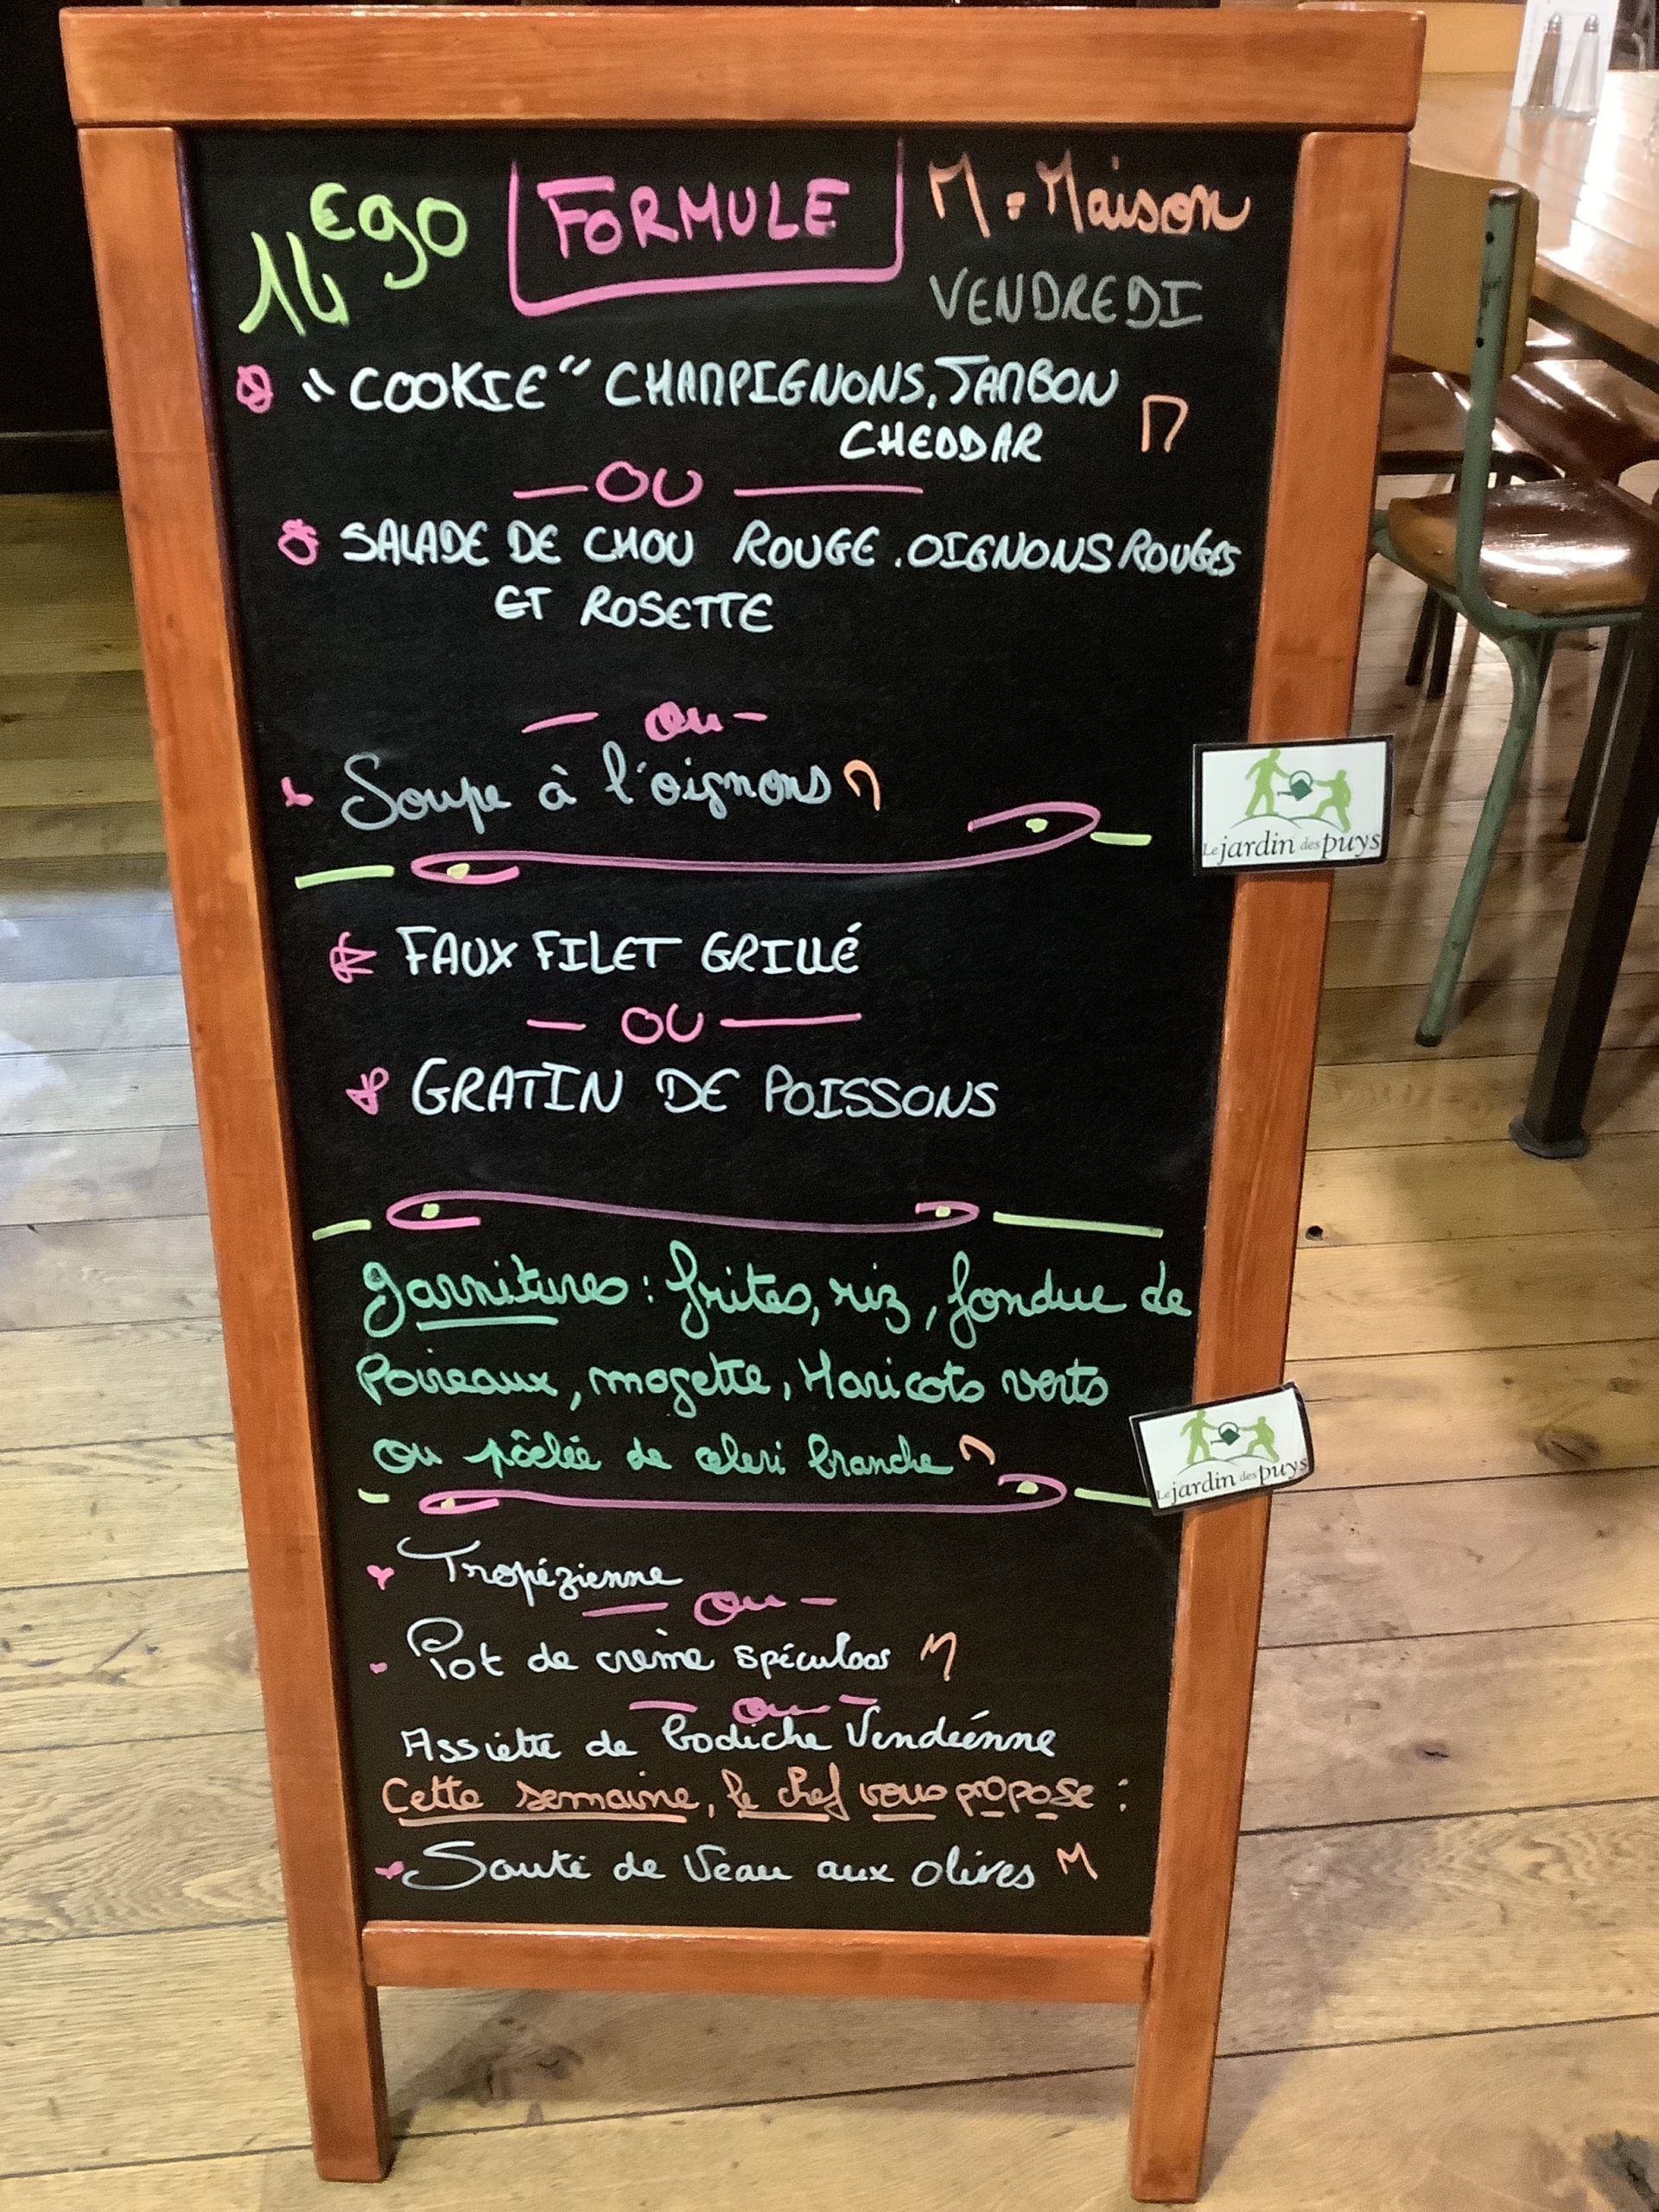 14€90 FORMULE M = Maison
VENDREDI
"COOKIE" CHAMPIGNONS, JAMBON
CHEDDAR M
OU
SALADE DE CHOU ROUGE. OIGNONS ROUGES
ET ROSETTE
ou
Soupe à l'oignons M
Le jardin des puys
FAUX FILET GRILLÉ
OU
GRATIN DE POISSONS
garnitures : frites, riz, fondue de
Poireaux, mogette, Haricots verts
ou pôêlée de celeri branche M
Le jardin des puys
Tropézienne
ou
Pot de crème spéculoos M
ou
Assiette de Brodiche Vendéenne
Cette semaine, le chef vous propose :
Sauté de Veau aux olives M